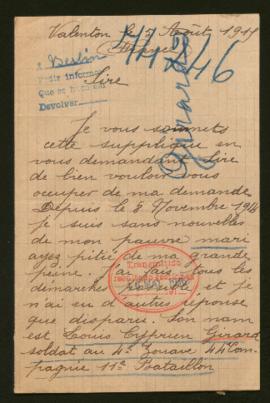 Valenton le 5 Août 1915
à Berlin
Pedir informe
Que se
Devolver
74246
Girard
Sire
Je vous soumets
cette supplique en
vous demandant Sire
de bien vouloir vous
occuper de ma demande
Depuis le 8 Novembre 1914
je suis sans nouvelles
de mon pauvre mari
ayez pitié de ma grande
peine. J'ai fais tous les
démarches et je
n'ai eu d'autre réponse
que disparu. Son nom
est Louis Cyprien Girard
soldat au 4e Zouave 44e Com-
pagnie 11e Bataillon